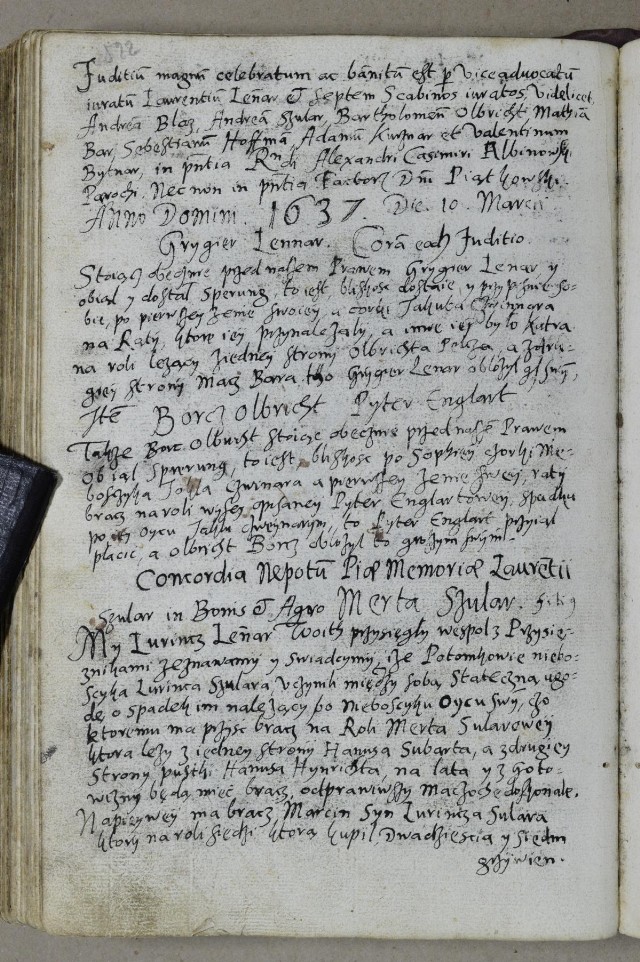 Juditiũ magnũ celebratum ac bãnitũ est p Viceadvocatũ
iuratũ Laurentiũ Leñar & Septem Scabinos iuratos, Videlicet,
Andreã Blaz, Andreã Szular, Bartholomeũ Olbricht, Mathiã
Bar, Sebestianũ Hoffmã, Adamũ Kuznar et Valentinum
Bytnar, in pñtia Rndi Alexandri Casimiri Albinowski
Parochi, Necnon in pñtia Factoris Dñi Piątkowski.
Anno Domini. 1637. Die. 10. Marcii
Grygier Lennar. Corã eodẽ Juditio.
Stoiąc obecznie przed naszem Prawem Grygier Lenar, y
obiął y dostał Sperung, to iest, bliskosc
po pierwszey Zenie swoiey, a corki Jakuba
na Raty, ktore iey przynalezały, a
na roli lezący ziedney strony Olbrichta, a zdru-
giey strony Macz Bara, Grygier Lenar obłozył
Itẽ Borcz Olbricht Pyter Englart
Takze Borc. Olbricht stoiąc obecznie przed naszẽ Prawem
Obiął Sperung, to iest, bliskosc po
a pierwszey zenie swey, raty
bracz na roli wyszey opisaney Pyter Englartowey, spadku
po iey Oycu, to Pyter Englart przyiął
płacic, a Olbricht Borcz obłozył to groszym swym.
Concordia Nepotũ Piæ Memoriæ Laurẽtii
Szular in Bonis & Agro Merta Szular.
My Lurincz Leñar Woith przysięgły wespoł z Przysię-
znikami zeznawamy y swiadczymy, ize Potomkowie niebo-
szczyka Lurinca Szulara, uczynili między sobą Stateczną ugo-
dę, o spadek im należący po Nieboszczyku Oycu swỹ,
ktoremu ma przysc bracz na Roli Merta Sularowey
ktora lezy z iedney strony Hanusa Subarta, a zdrugiey
Strony pustki Hanusa Hynrichta, na lata y z goto-
wizny będą miec bracz, odprawiwszy Macochę doskonale.
Napierwey ma bracz Marcin Syn Lurincza Sulara
ktory na roli siedzi ktorą kupił Dwadziescia y siedm
grzywien.